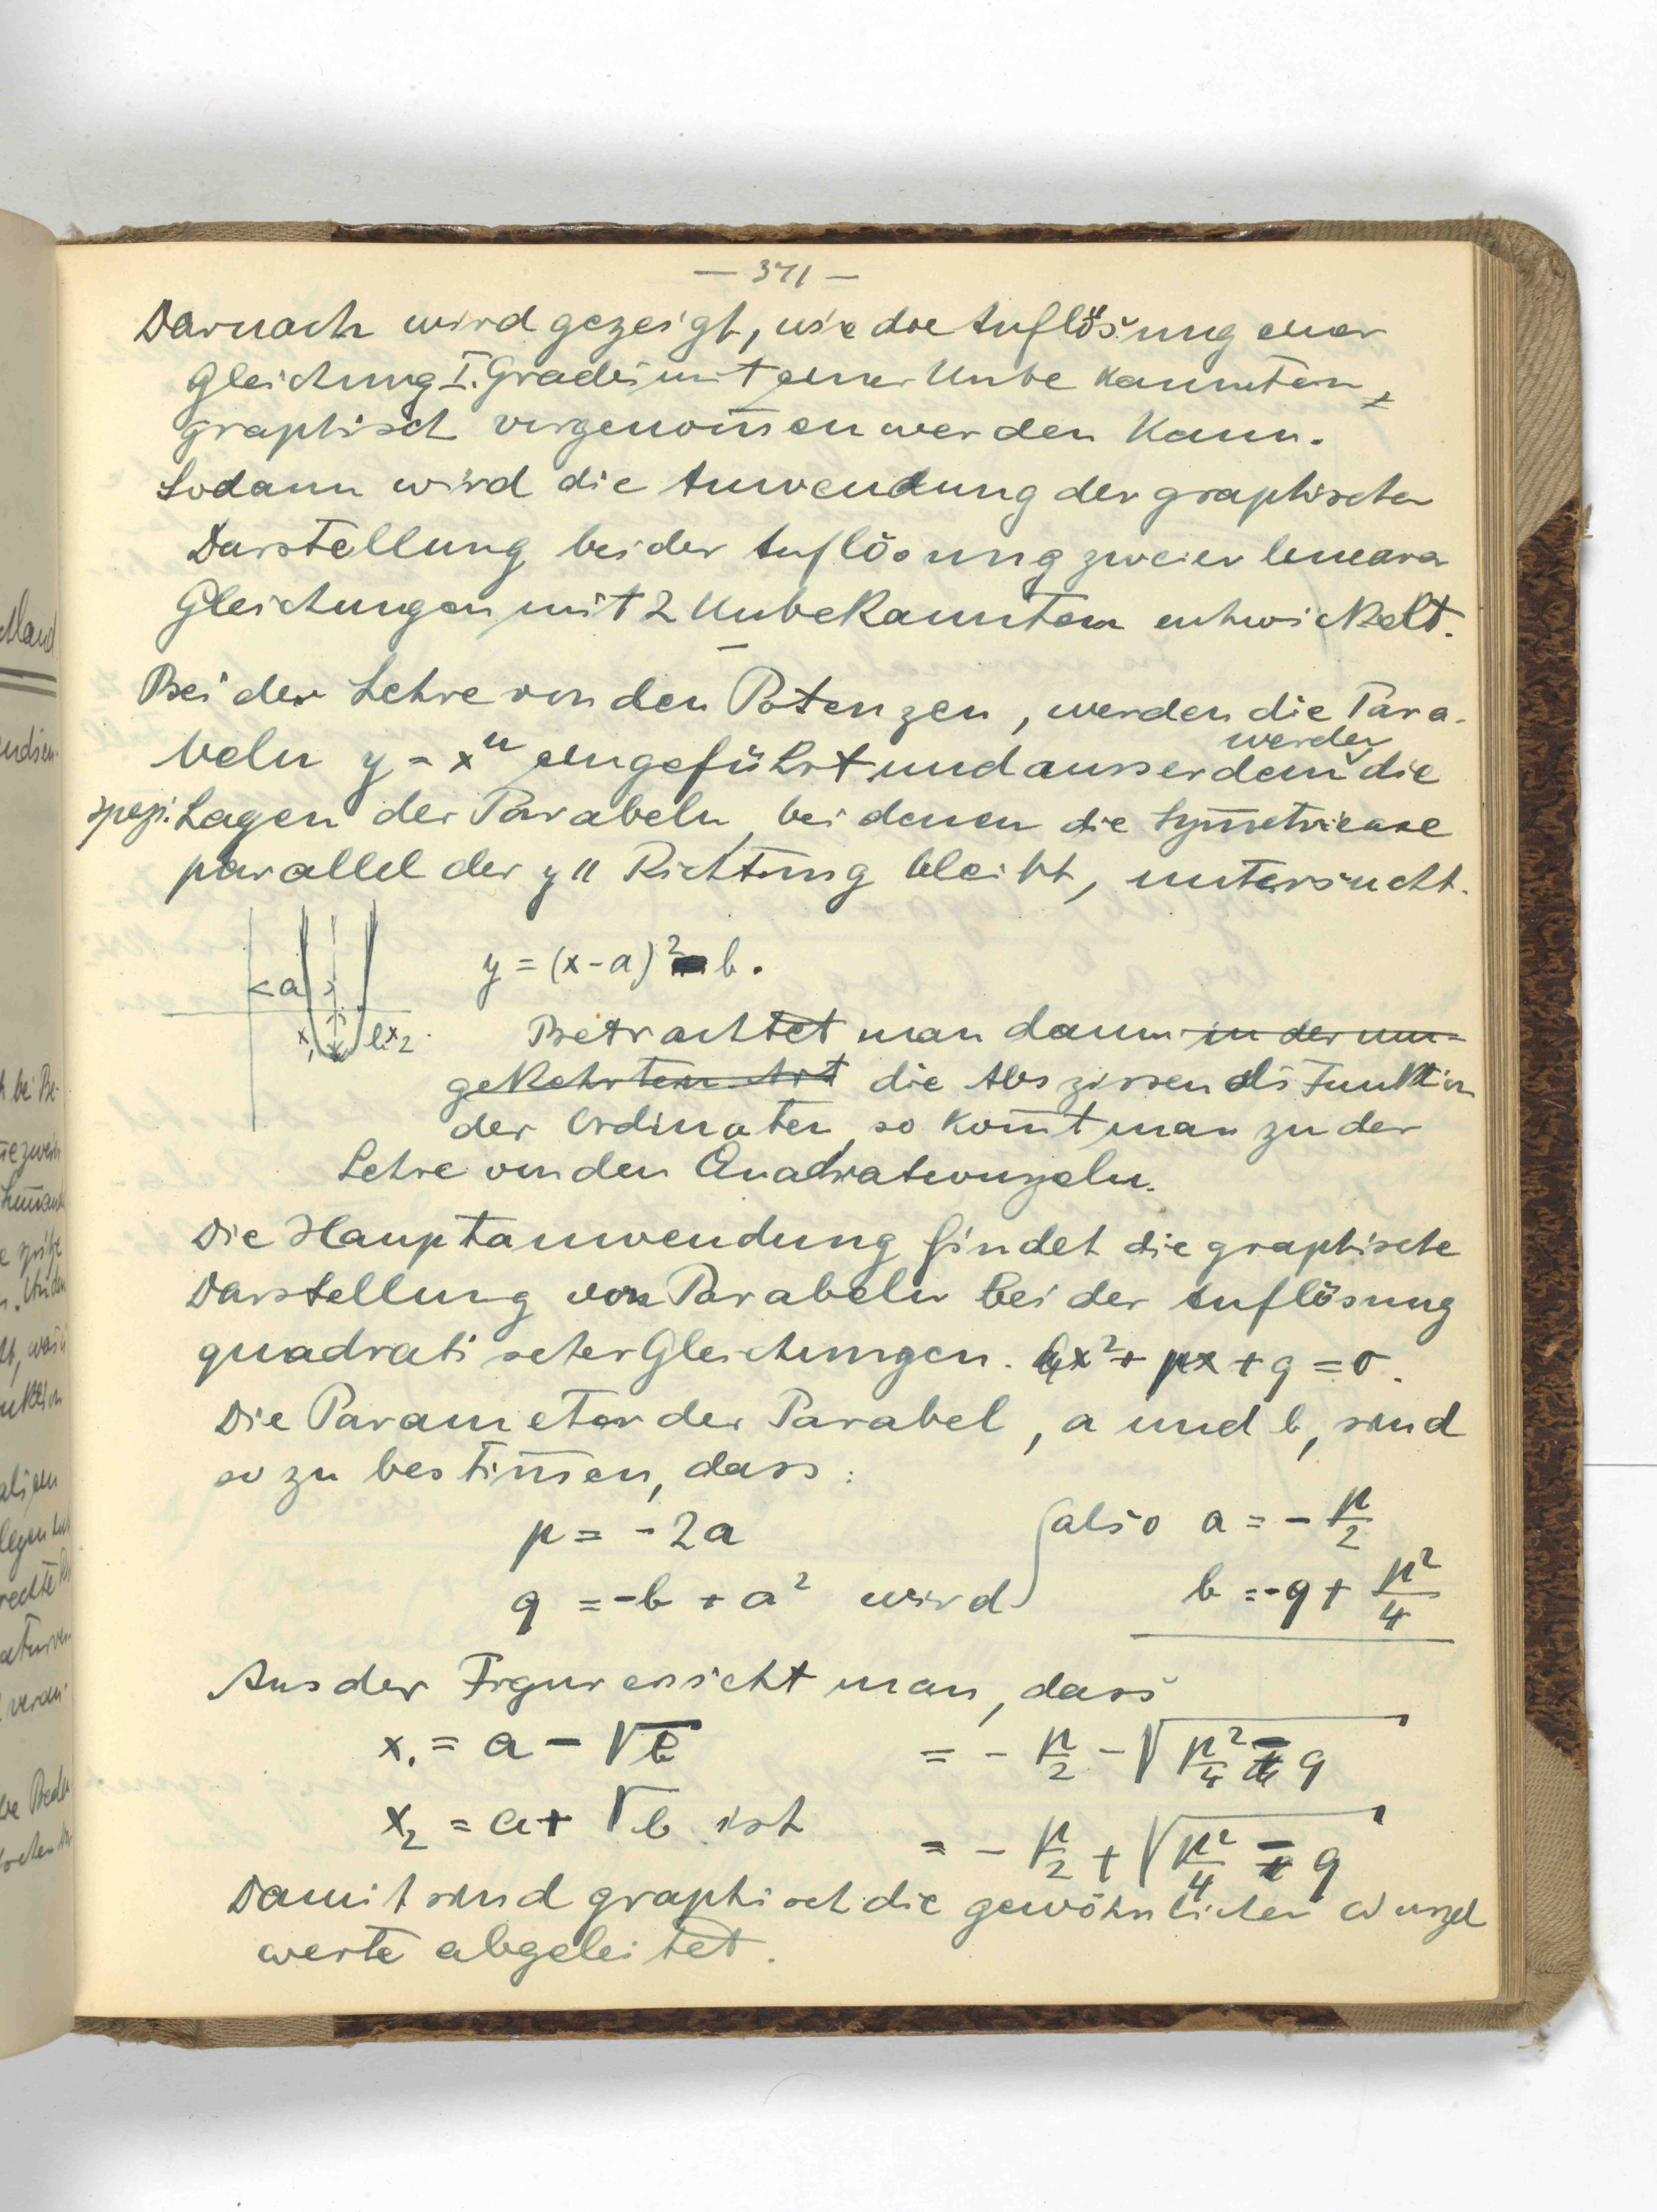 — 371 —
Darnach wird gezeigt, wie die Auflösung einer
Gleichung I. Grades mit einer Unbekannten,
graphisch vorgenom̅en werden kann.
Sodann wird die Anwendung der graphischen
Darstellung bei der Auflösung zweier linearer
Gleichungen mit 2 Unbekannten entwickelt.
—
Bei der Lehre von den Potenzen, werden die Para-
beln y = xⁿ eingeführt und ausserdem werden die
spezi. Lagen der Parabeln, bei denen die Sym̅etrieaxe
parallel der y" Richtung bleibt, untersucht.
y = (x-a)² - b.
a
x₁ b x₂
Betrachtet man dann in der um=
gekehrten Art die Abszissen als Funktion
der Ordinaten, so kom̅t man zu der
Lehre von den Quadratwurzeln.
Die Hauptanwendung findet die graphische
Darstellung von Parabeln bei der Auflösung
quadratischer Gleichungen. x² + px + q = 0.
Die Parameter der Parabel, a und b, sind
so zu bestim̅en, dass:
p = -2a also a = - p/2
q = -b + a² wird b = -q + p²/4
Aus der Figur ersieht man, dass
x₁ = a - √b = - p/2 - √(p²/4 - q)
x₂ = a + √b ist = - p/2 + √(p²/4 - q)
Damit sind graphisch die gewöhnlichen Wurzel
werte abgeleitet.